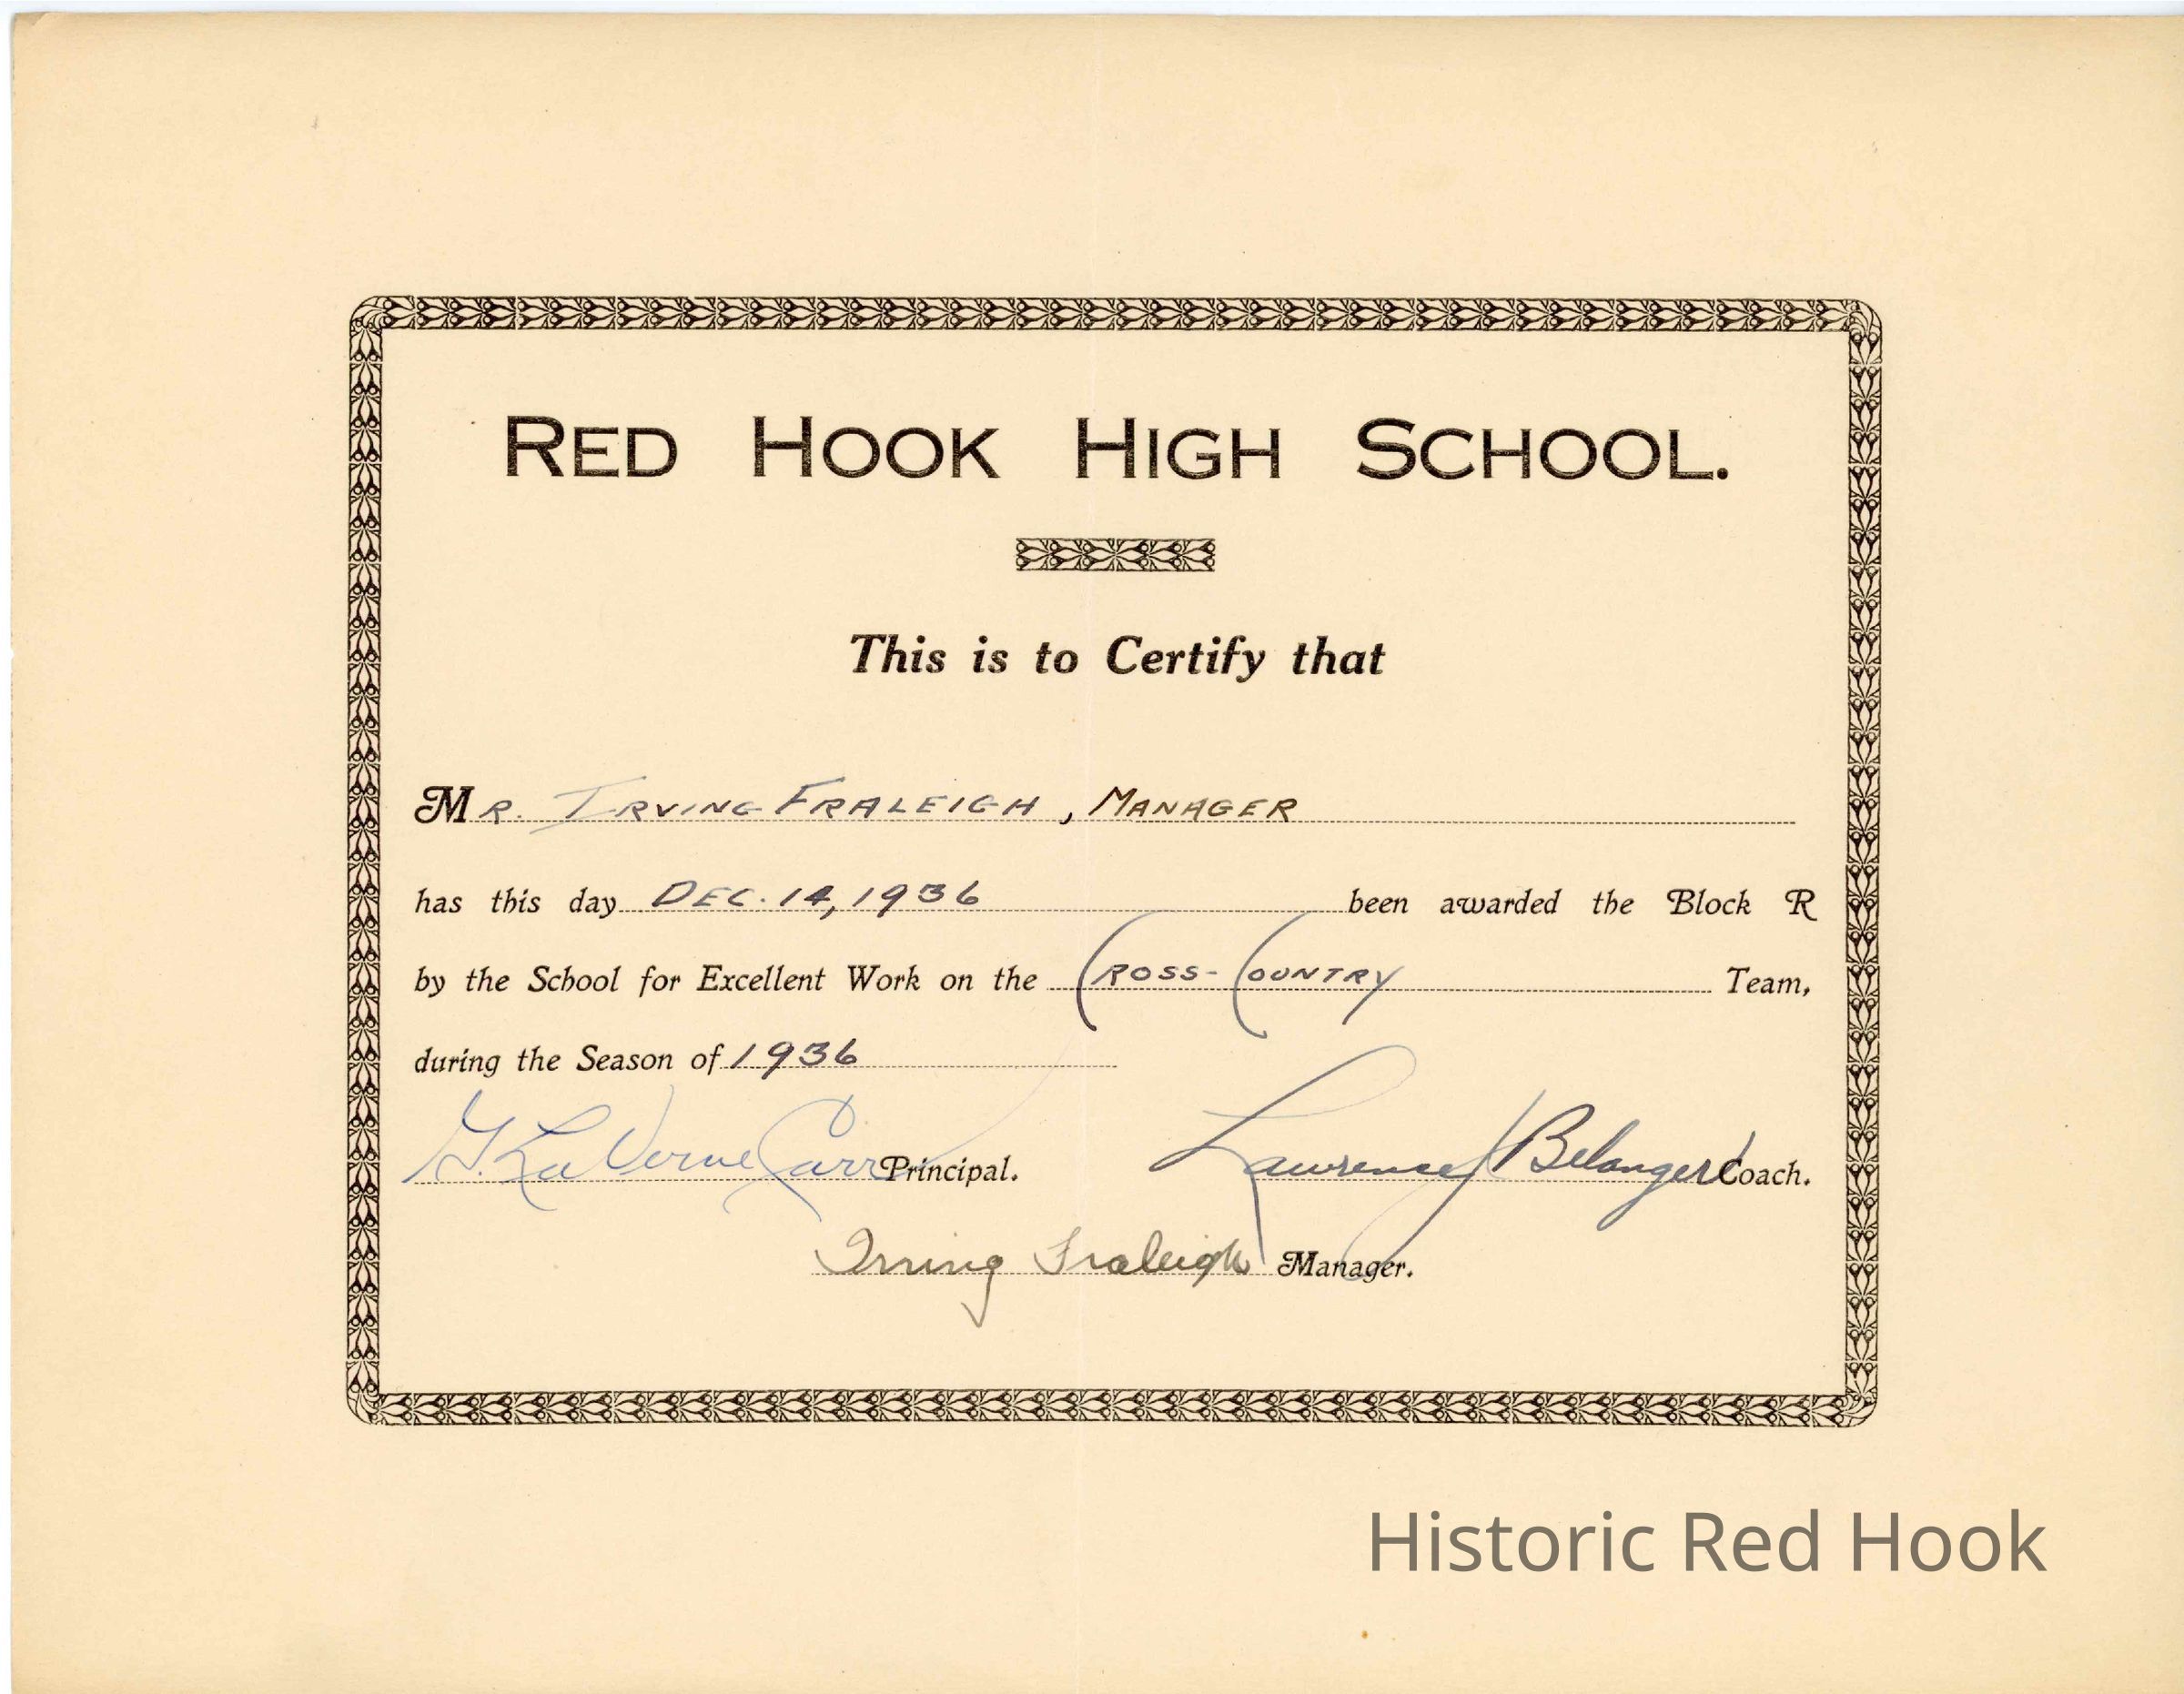 RED HOOK HIGH SCHOOL.
This is to Certify that
MR. IRVING FRALEIGH, MANAGER
has this day DEC. 14, 1936 been awarded the Block R
by the School for Excellent Work on the CROSS-COUNTRY Team,
during the Season of 1936
G. La Verne Carr Principal. Lawrence J Belanger Coach.
Irving Fraleigh Manager.
Historic Red Hook